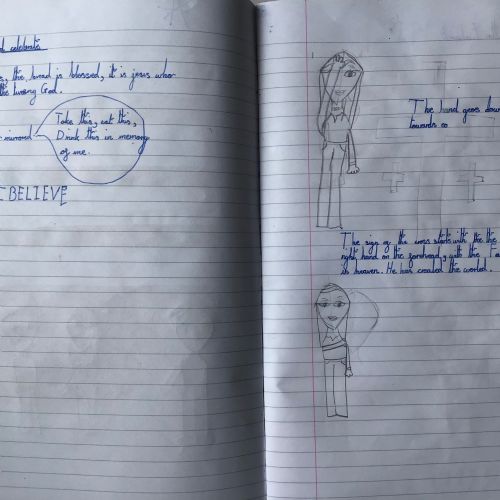 celebrate
the bread is blessed, it is jesus who
the living God.
Take this, eat this,
Drink this in memory
of me.
I BELIEVE
The hand goes down
towards
The sign of the cross starts with the the
right hand on the forehead, with the
in heaven. He has created the world.